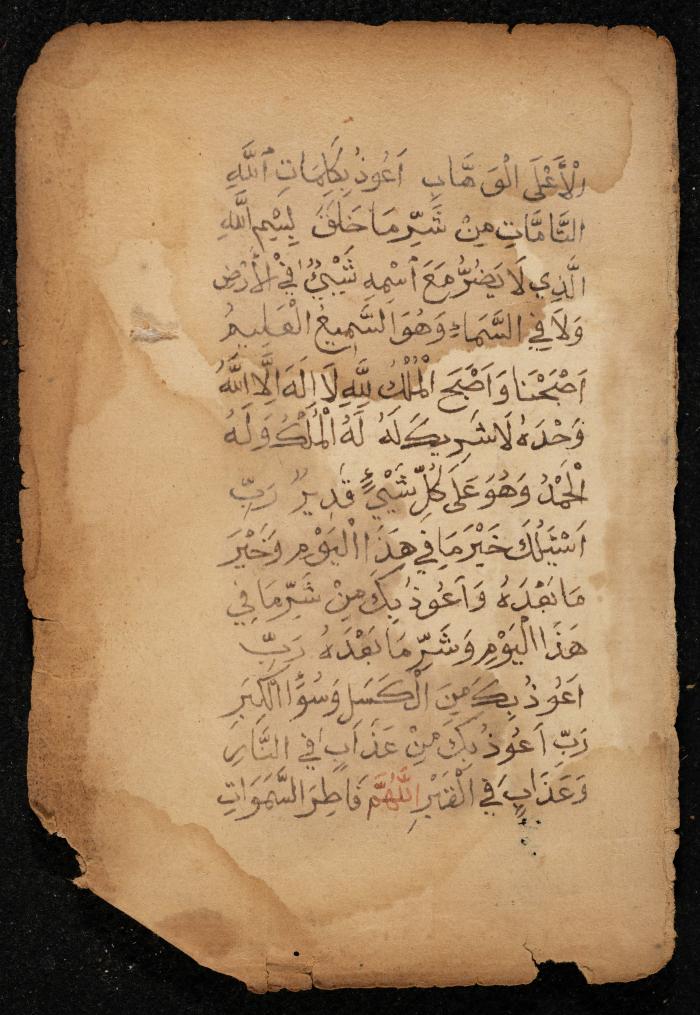 الْأَعْلَى الْوَهَّابِ اَعُوذُ بِكَلِمَاتِ ٱللَّهِ
التَّامَّاتِ مِنْ شَرِّ مَا خَلَقَ بِسْمِ اللَّهِ
الَّذِي لَا يَضُرُّ مَعَ ٱسْمِهِ شَيْئٌ فِي الْأَرْضِ
وَلَا فِي السَّمَاءِ وَهُوَ السَّمِيعُ الْعَلِيمُ
اَصْبَحْنَا وَاَصْبَحَ الْمُلْكُ لِلَّهِ لَا اِلَهَ اِلَّا اللَّهُ
وَحْدَهُ لَا شَرِيكَ لَهُ لَهُ الْمُلْكُ وَلَهُ
الْحَمْدُ وَهُوَ عَلَى كُلِّ شَيْئٍ قَدِيرٌ رَبِّ
اَسْئَلُكَ خَيْرَ مَا فِي هَذَا الْيَوْمِ وَخَيْرَ
مَا بَعْدَهُ وَاَعُوذُ بِكَ مِنْ شَرِّ مَا فِي
هَذَا الْيَوْمِ وَشَرِّ مَا بَعْدَهُ رَبِّ
اَعُوذُ بِكَ مِنَ الْكَسَلِ وَسُوْءِ الْكِبَرِ
رَبِّ اَعُوذُ بِكَ مِنْ عَذَابٍ فِي النَّارِ
وَعَذَابٍ فِي الْقَبْرِ اللَّهُمَّ فَاطِرَ السَّمَوَاتِ